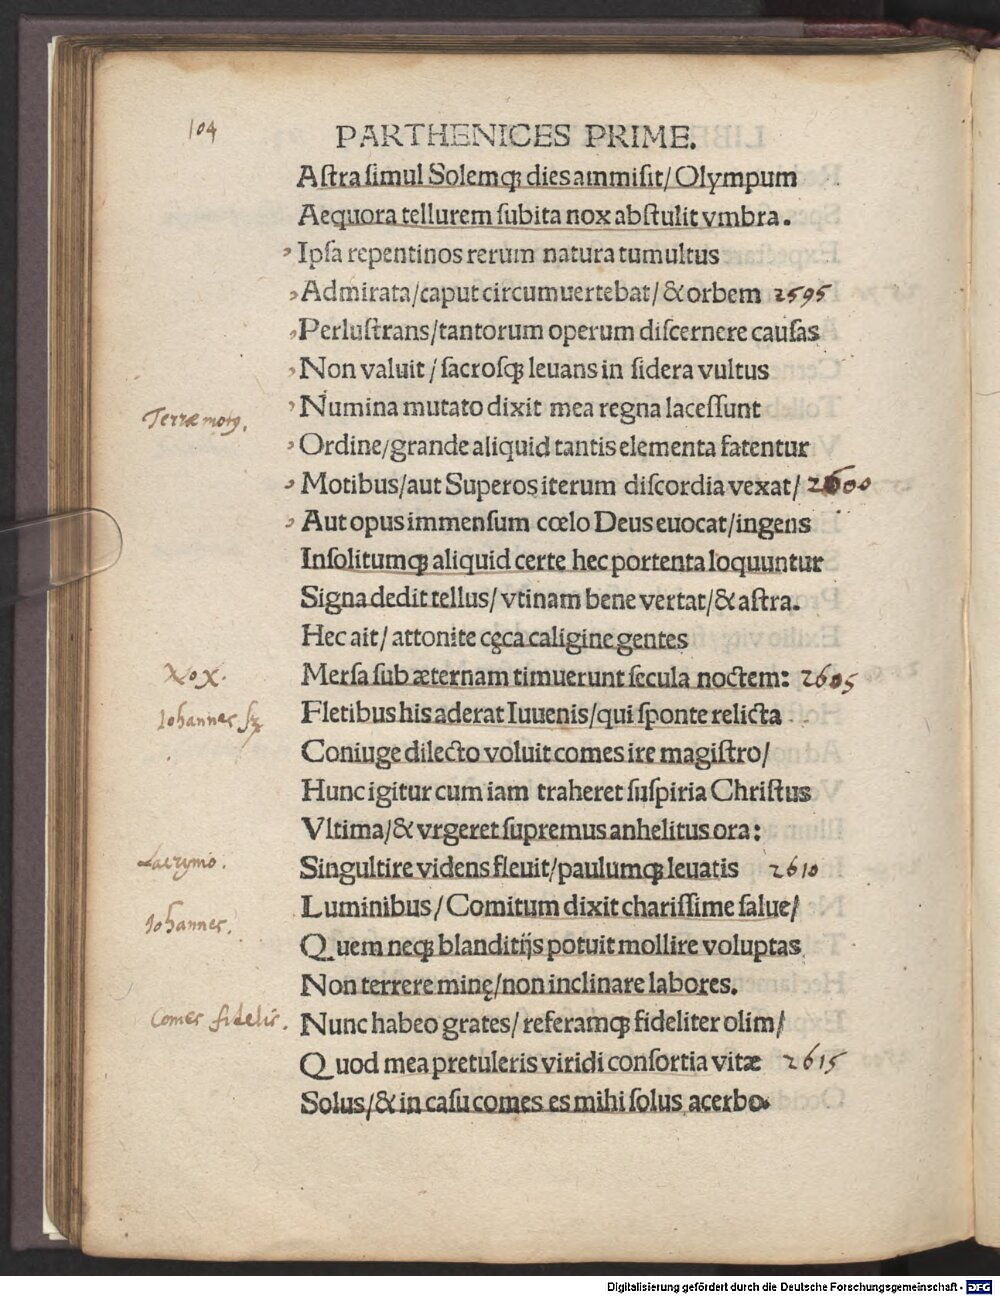 104
PARTHENICES PRIME.
Aſtra ſimul Solemqꝫ dies ammiſit/ Olympum
Aequora tellurem ſubita nox abſtulit vmbra.
Ipſa repentinos rerum natura tumultus
Admirata/ caput circumuertebat/ & orbem 2595
Perluſtrans/ tantorum operum diſcernere cauſas
Non valuit/ ſacroſqꝫ leuans in ſidera vultus
Numina mutato dixit mea regna laceſſunt
Terræ motꝰ.
Ordine/ grande aliquid tantis elementa fatentur
Motibus/ aut Superos iterum diſcordia vexat/ 2600
Aut opus immenſum cœlo Deus euocat/ ingens
Inſolitumqꝫ aliquid certe hec portenta loquuntur
Signa dedit tellus/ vtinam bene vertat/ & aſtra.
Hec ait/ attonite cęca caligine gentes
Nox.
Merſa ſub æternam timuerunt ſecula noctem: 2605
Iohannes
Fletibus his aderat Iuuenis/ qui ſponte relicta
Coniuge dilecto voluit comes ire magiſtro/
Hunc igitur cum iam traheret ſuſpiria Chriſtus
Vltima/ & vrgeret ſupremus anhelitus ora:
Lacrymo.
Singultire videns fleuit/ paulumqꝫ leuatis 2610
Luminibus/ Comitum dixit chariſſime ſalue/
Iohannes.
Quem neqꝫ blanditijs potuit mollire voluptas
Non terrere minę/ non inclinare labores.
Comes fidelis.
Nunc habeo grates/ referamqꝫ fideliter olim/
Quod mea pretuleris viridi conſortia vitæ 2615
Solus/ & in caſu comes es mihi ſolus acerbo.
Digitalisierung gefördert durch die Deutsche Forschungsgemeinschaft - DFG